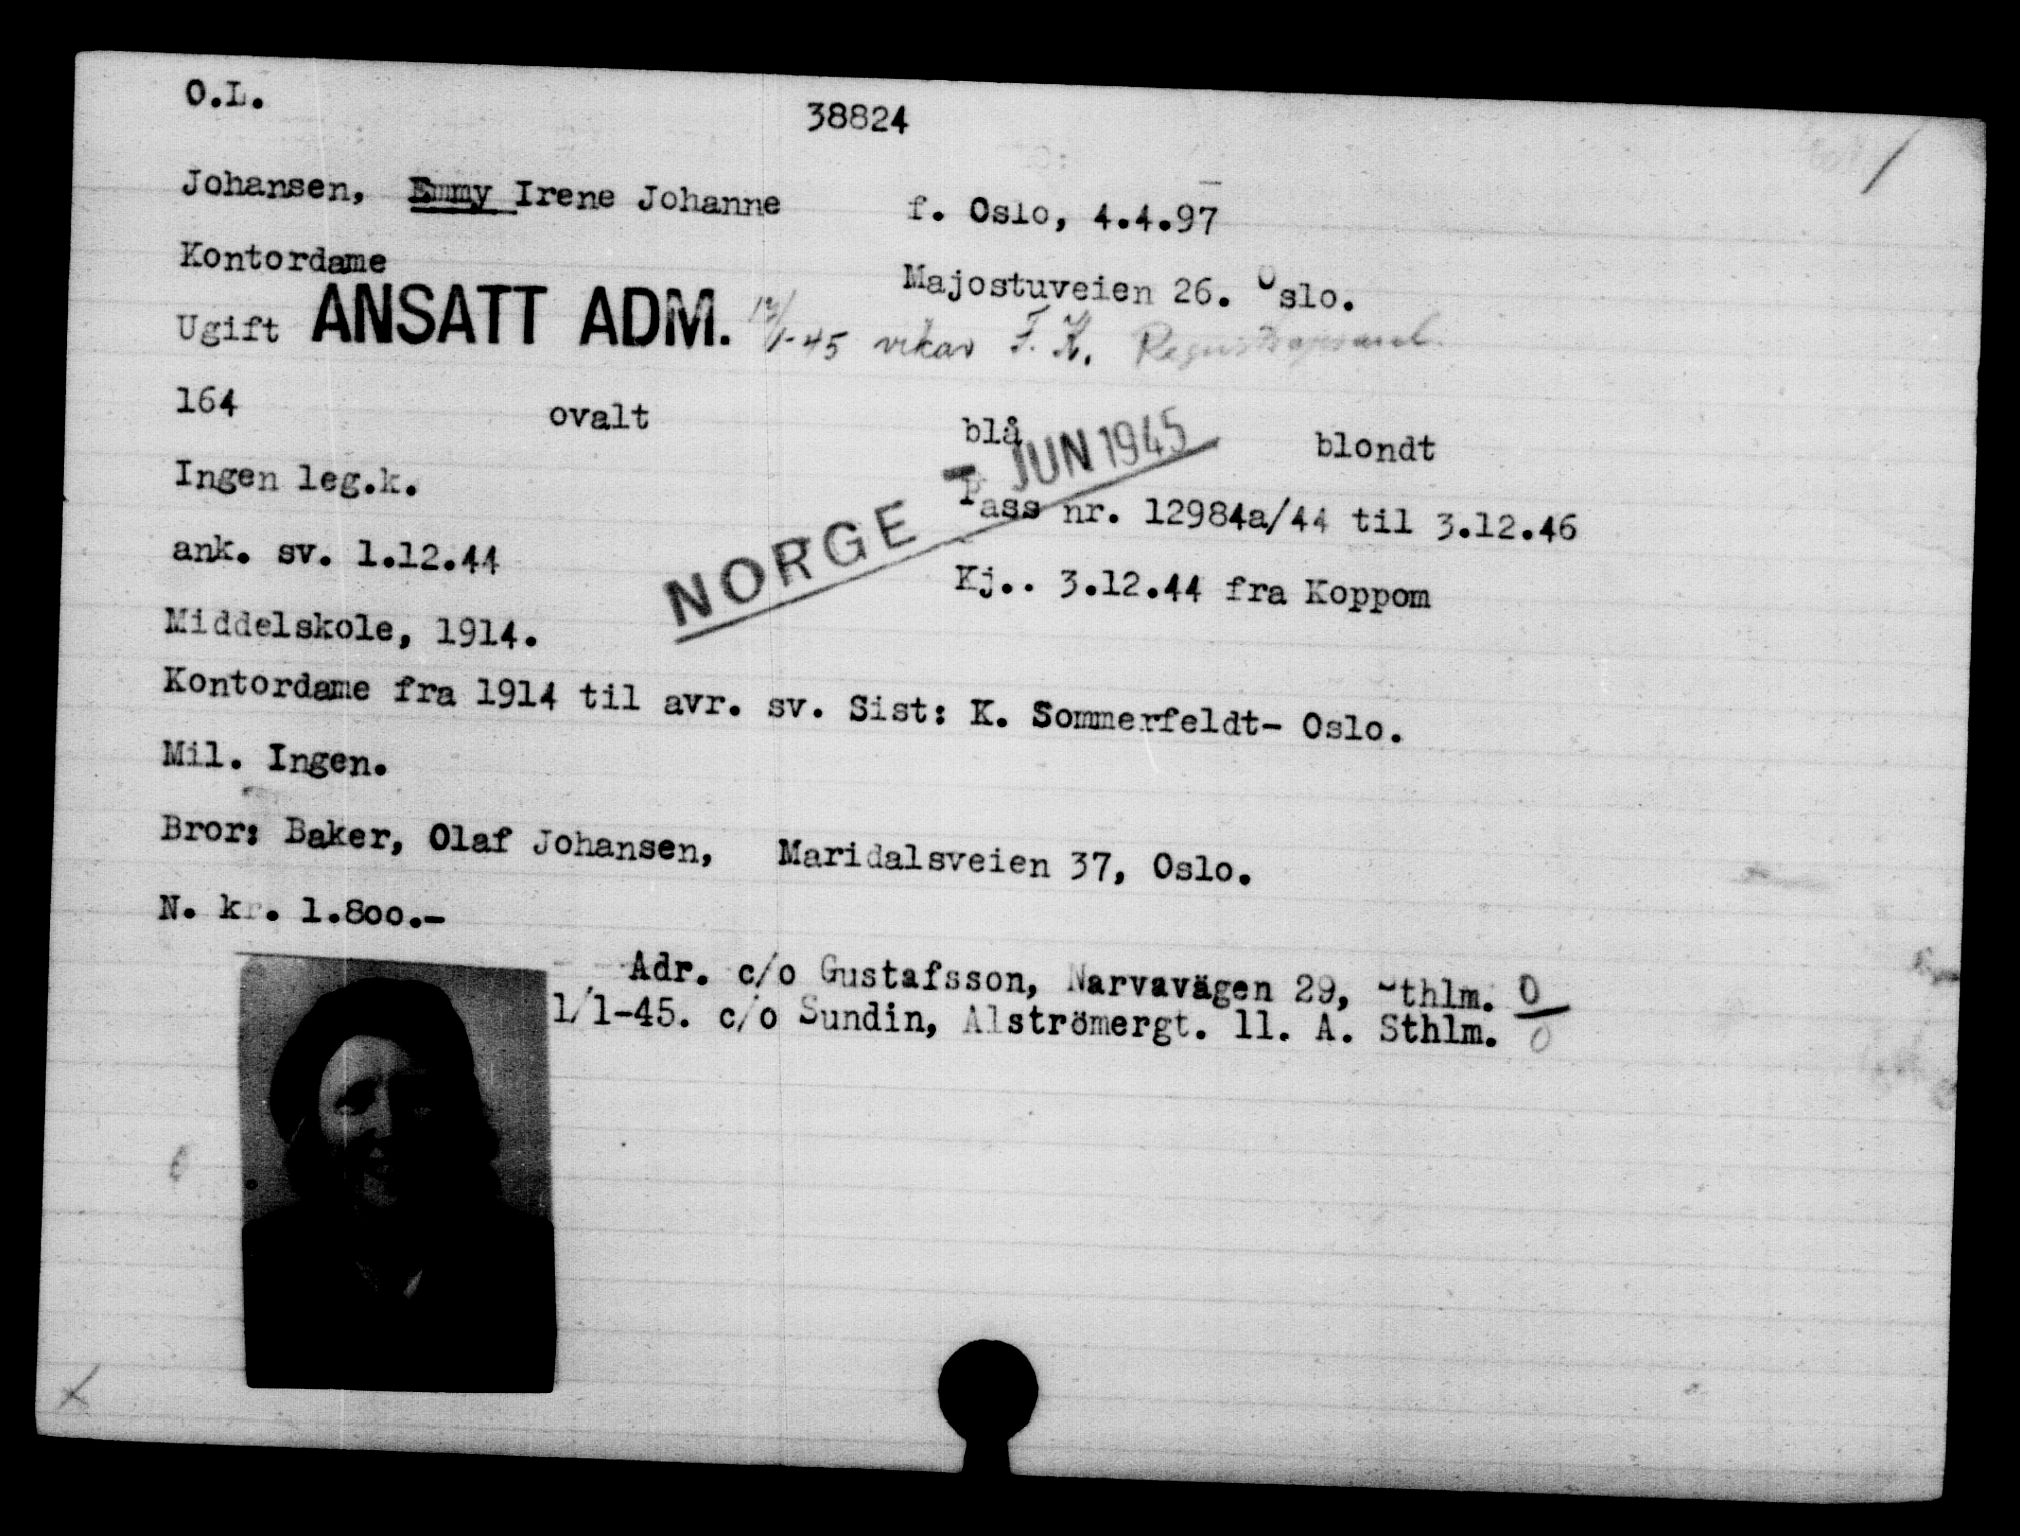 O.L.
38824
Johansen, Emmy Irene Johanne f. Oslo, 4.4.97
Kontordame Majostuveien 26. Oslo.
Ugift ANSATT ADM. 12/1-45 vikar F. K.
164 ovalt blå blondt
NORGE - JUN 1945
Ingen leg.k. Pass nr. 12984a/44 til 3.12.46
ank. sv. 1.12.44 Kj.. 3.12.44 fra Koppom
Middelskole, 1914.
Kontordame fra 1914 til avr. sv. Sist: K. Sommerfeldt- Oslo.
Mil. Ingen.
Bror: Baker, Olaf Johansen, Maridalsveien 37, Oslo.
N. kr. 1.800.-
Adr. c/o Gustafsson, Narvavägen 29, Sthlm. 0
1/1-45. c/o Sundin, Alströmergt. 11. A. Sthlm. 0